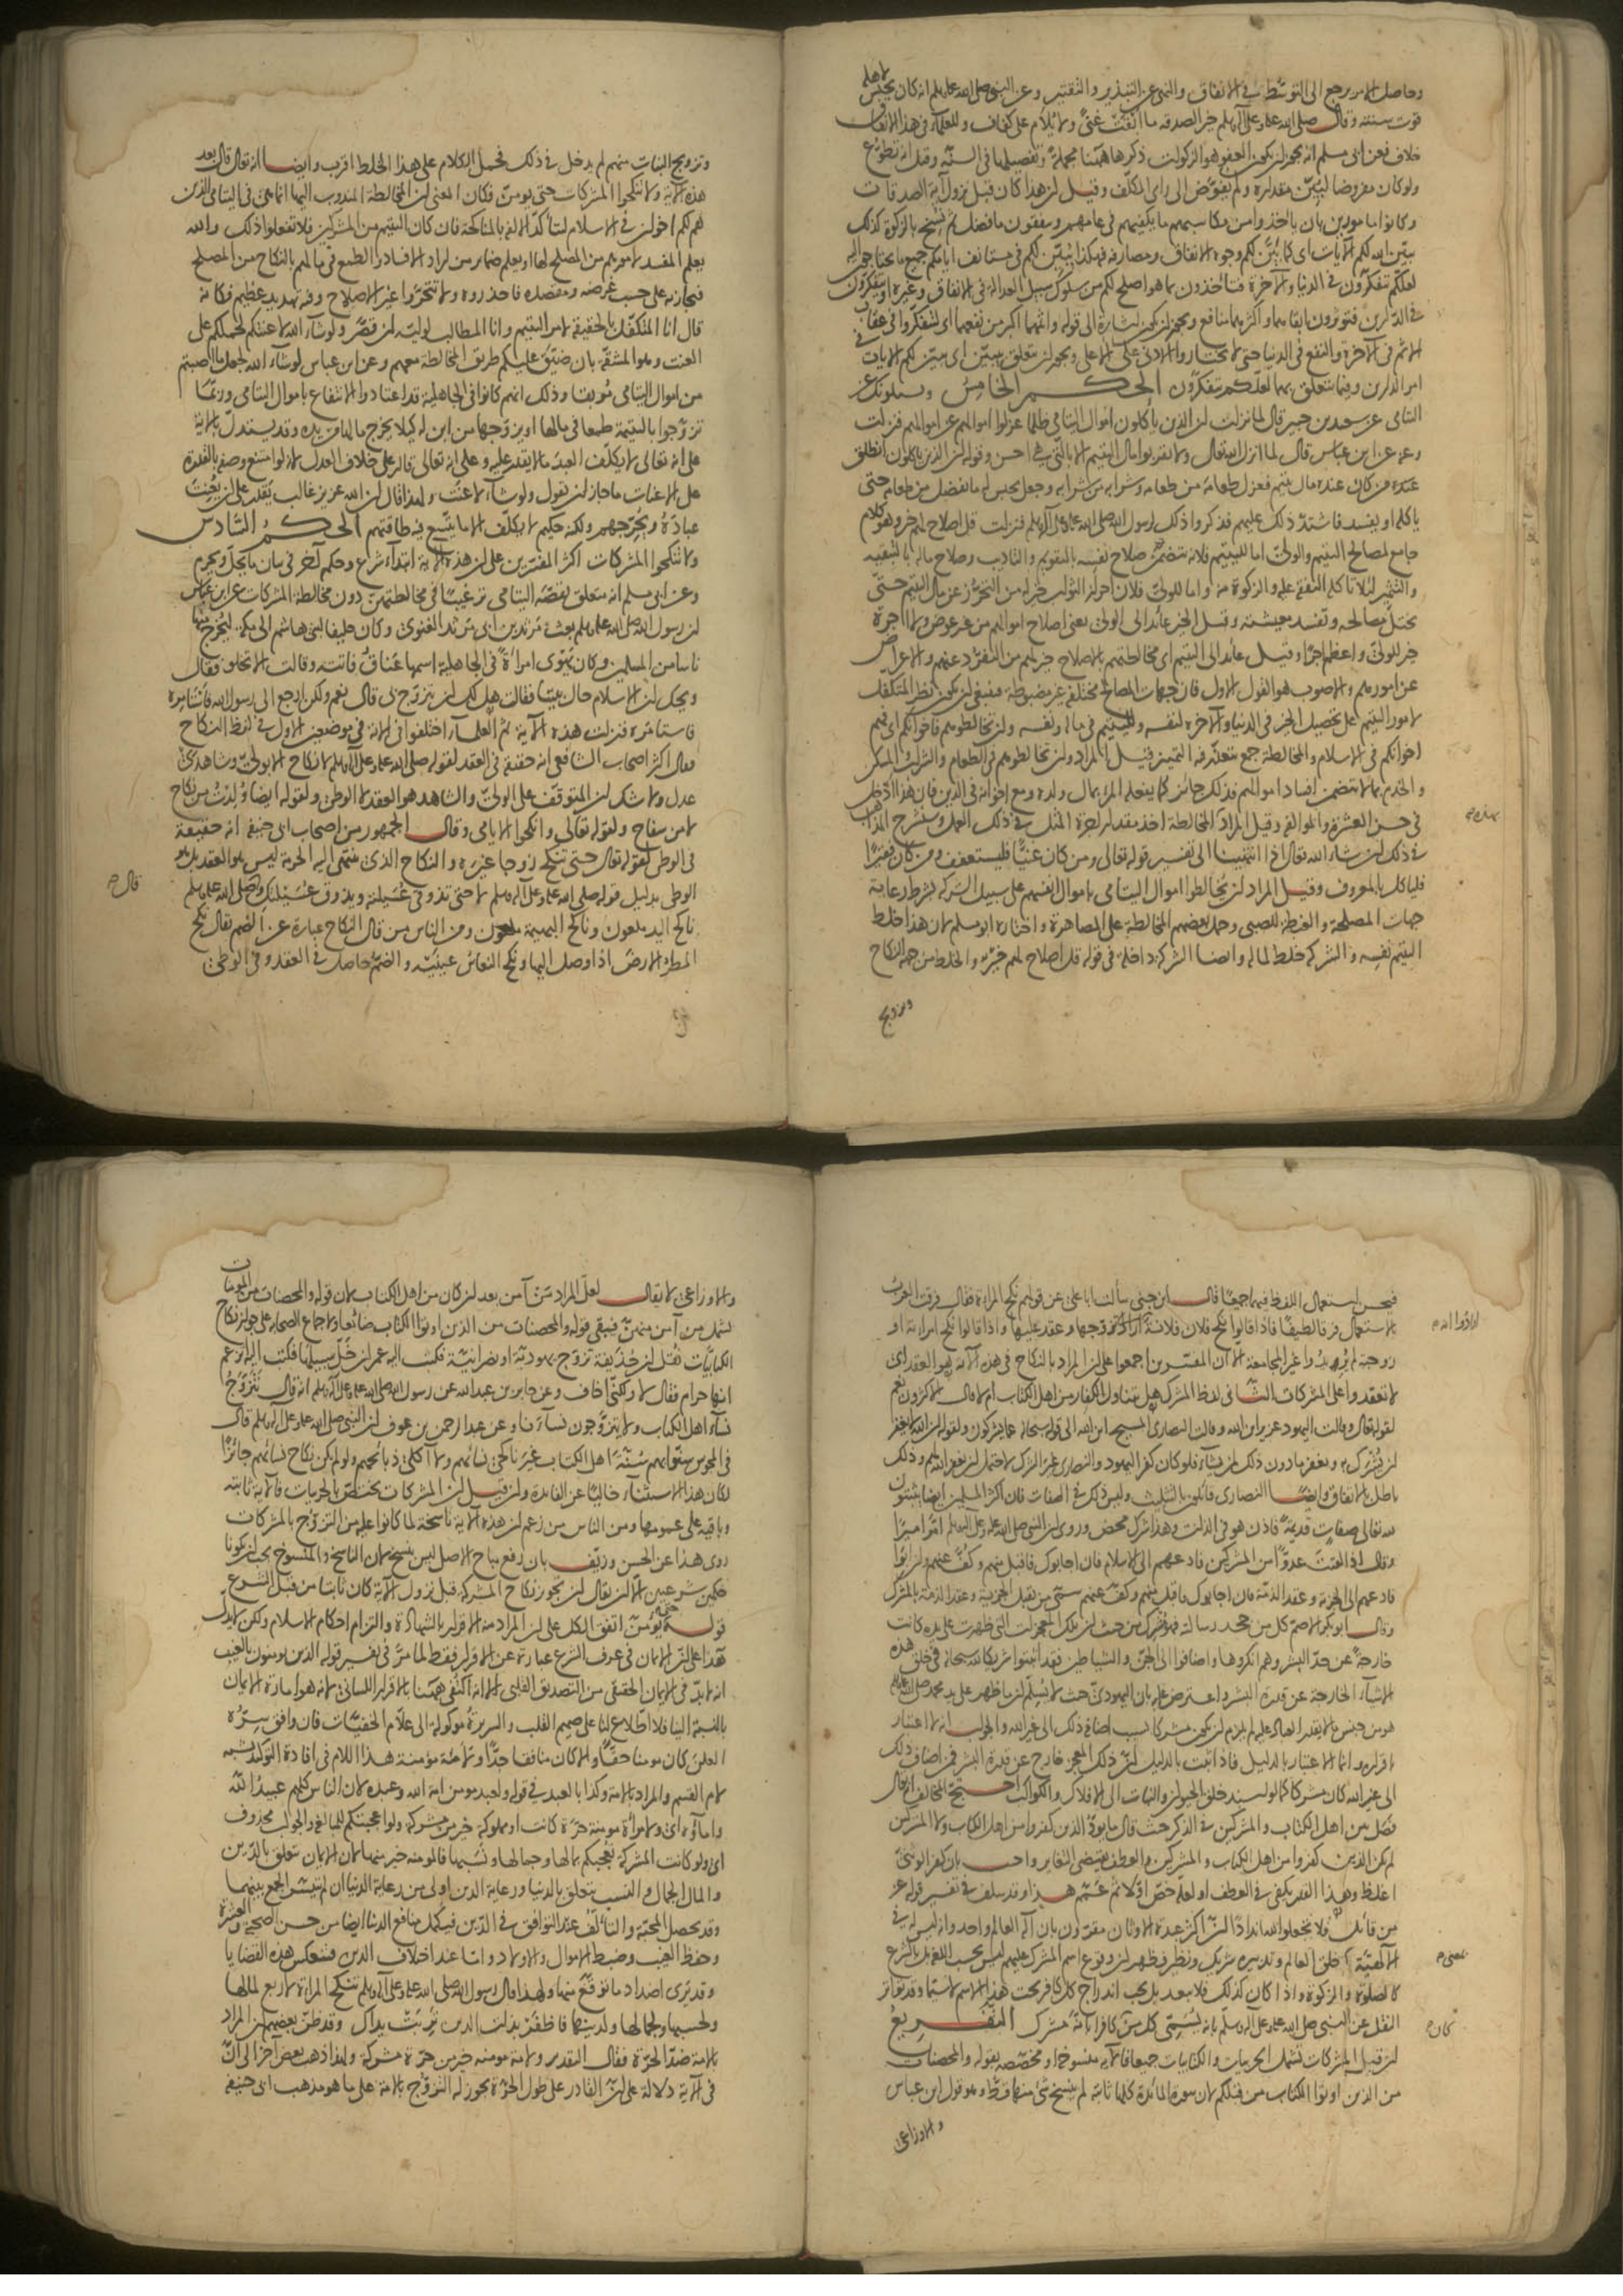 وحاصل الامر يرجع الى التوسّط في الانفاق والنهي عن التبذير والتقتير وعن النبي صلى الله عليه وسلم انه كان يحبس لاهله
قوت سنته وقال صلى الله عليه وعلى آله وسلم خير الصدقة ما ابقت غنىً ولا يلام على كفاف وللعلماء في هذا الانفاق
خلاف فعن ابي مسلم انه يجوز ان يكون العفو هو الزكوات ذكرها ههنا مجملة وتفصيلها في السنّة وقيل انه تطوّع
ولو كان مفروضا لبُيّن مقداره ولم يفوّض الى راى المكلّف وقيل ان هذا كان قبل نزول آية الصدقات
وكانوا مامورين بان ياخذوا من مكاسبهم ما يكفيهم في عامهم وينفقون ما فضل ثم نسخ بالزكوة كذلك
يبيّن الله لكم الآيات اى كما بيّن لكم وجوه الانفاق ومصارفه فهكذا يُبيّن لكم في مستانف ايامكم جميع ما تحتاجون اليه
لعلّكم تتفكّرون في الدنيا والآخرة فتاخذون بما هو اصلح لكم من سلوك سبيل العدالة في الانفاق وغيره او تتفكّرون
في الدّارين فتوثرون ابقاهما واكثرهما منافع ويجوز ان يكون اشارة الى قوله واثمهما اكبر من نفعهما اى لتتفكّروا في عقاب
الاثم في الآخرة والنفع في الدنيا حتى لا تختاروا الادنى على الاعلى ويجوز ان يتعلق بيبيّن اى يبيّن لكم الايات في
امر الدارين وفيما يتعلق بهما لعلّكم تتفكرون الحكم الخامس ويسئلونك عن
اليتامى عن سعيد بن جبير قال لما نزلت ان الذين ياكلون اموال اليتامى ظلما عزلوا اموالهم عن اموالهم فنزلت
وعنه عن ابن عباس قال لما انزل الله تعالى ولا تقربوا مال اليتيم الا بالّتى هي احسن وقوله ان الذين ياكلون انطلق
مَن كان عنده مال يتيم فعزل طعامه من طعامه وشرابه من شرابه وجعل يحبس له ما يفضل من طعامه حتى
ياكله او يفسد فاشتدّ ذلك عليهم فذكروا ذلك لرسول الله صلى الله عليه وعلى آله وسلم فنزلت قل اصلاح لهم خير وهو كلام
جامع لمصالح اليتيم والولىّ اما لليتيم فلانه يتضمّن صلاح نفسه بالتقويم والتاديب وصلاح ماله بالتبقية
والتثمير لئلا تاكله النفقة عليه والزكوة منه واما للولىّ فلان احراز الثواب خير له من التحرّز عن مال اليتيم حتّى
تختلّ مصالحه وتفسد معيشته وقيل الخير عائد الى الولىّ يعنى اصلاح اموالهم من غير عوض ولا اجرة
خير للولىّ واعظم اجرا وقيل عائد الى اليتيم اى مخالطتهم بالاصلاح خير لهم من التفرّد عنهم والاعراض
عن امورهم والاصوب هو القول الاول فان جهات المصالح مختلفة غير مضبوطة فينبغى ان يكون نظر المتكفّل
لامور اليتيم على تحصيل الخير في الدنيا والآخرة لنفسه ولليتيم في ماله ونفسه وان تخالطوهم فاخوانكم اى فهم
اخوانكم في الاسلام والمخالطة جمع يتعذّر فيه التمييز فقيل المراد وان تخالطوهم في الطعام والشراب والمسكن
والخدم بما لا يتضمن افساد اموالهم فذلك جائز كما يفعله المرء بمال ولده ومع اخوانه في الدين فان هذا ادخل
في حسن العشرة والموالفة وقيل المراد بالمخالطة اخذ مقدار اجرة المثل في ذلك العمل وسنشرح المذاهب
في ذلك ان شاء الله تعالى اذا انتهينا الى تفسير قوله تعالى ومن كان غنيًّا فليستعفف ومن كان فقيرًا
فلياكل بالمعروف وقيل المراد ان يخالطوا اموال اليتامى باموال انفسهم على سبيل الشركة بشرط رعاية
جهات المصلحة والغبطة للصبى وحمل بعضهم المخالطة على المصاهرة واختاره ابو مسلم لان هذا خلط
اليتيم نفسه والشركة خلط لماله وايضا الشركة داخلة في قوله قل اصلاح لهم خير والخلط من جهة النكاح
وتزويج
وتزويج البنات منهم لم يدخل في ذلك فحمل الكلام على هذا الخلط اقرب وايضا انه تعالى قال بعد
هذه الآية ولا تنكحوا المشركات حتى يومنّ فكان المعنى ان المخالطة المندوب اليها انما هى في اليتامى الذين
هم لكم اخوان في الاسلام لتتاكّد الالفة بالمناكحة فان كان اليتيم من المشركين فلا تفعلوا ذلك والله
يعلم المفسد لامورهم من المصلح لها او يعلم ضمائر من اراد الافساد والطمع في مالهم بالنكاح من المصلح
فيجازيه على حسب غرضه ومقصده فاحذروه ولا تتحرّوا غير الاصلاح وفيه تهديد عظيم فكانه
قال انا المتكفّل بالحقيقة لامر اليتيم وانا المطالب لوليّه ان قصّر ولو شاء الله لاعنتكم لحملكم على
العنت وهو المشقّة بان ضيّق عليكم طريق المخالطة معهم وعن ابن عباس لو شاء الله لجعل ما اصبتم
من اموال اليتامى مُوبقا وذلك انهم كانوا في الجاهلية قد اعتادوا الانتفاع باموال اليتامى وربّما
تزوّجوا باليتيمة طمعا في مالها او يزوّجها من ابن له كيلا يخرج مالها من يده وقد يستدلّ بالآية
على انه تعالى لا يكلّف العبد ما لا يقدر عليه وعلى انه تعالى قادر على خلاف العدل لانه لو امتنع وصفه بالقدرة
على الاعنات ما جاز ان يقول ولو شاء لاعنت ولهذا قال ان الله عزيز غالب يقدر على ان يُعنت
عباده ويُحرّجهم ولكنه حكيم لا يكلّف الا ما يتّسع فيه طاقتهم الحكم السّادس
ولا تنكحوا المشركات اكثر المفسّرين على ان هذه الآية ابتداء شرع وحكم آخر في بيان ما يحلّ ويحرم
وعن ابى مسلم انه متعلق بقصّة اليتامى ترغيبًا في مخالطتهنّ دون مخالطة المشركات عن ابن عباس
ان رسول الله صلى الله عليه وسلم بعث مرثد بن ابى مرثد الغنوى وكان حليفا لبنى هاشم الى مكّة ليُخرج منها
ناسا من المسلمين وكان يهوى امرأةً في الجاهلية اسمها عَناق فاتته وقالت الا تخلو فقال
ويحكِ ان الاسلام حال بيننا فقالت هل لك ان تتزوّج بى قال نعم ولكن ارجع الى رسول الله فاستامره
فاستامره فنزلت هذه الآية ثم العلماء اختلفوا في الآية في موضعين الاول في لفظ النكاح
فقال اكثر اصحاب الشافعى انه حقيقة في العقد لقوله صلى الله عليه وعلى آله وسلم لا نكاح الا بولىّ وشاهدَى
عدل ولا شك ان المتوقّف على الولىّ والشاهد هو العقد لا الوطى ولقوله ايضا وُلدتُ من نكاح
لا من سفاح ولقوله تعالى وانكحوا الايامى وقال الجمهور من اصحاب ابى حنيفة انه حقيقة
في الوطى لقوله تعالى حتى تنكح زوجا غيره والنكاح الذى تنتهى اليه الحرمة ليس هو العقد بل هو
الوطى بدليل قوله صلى الله عليه وعلى آله وسلم لا حتى تذوقى عُسيلته ويذوق عُسَيلتكِ وقال صلى الله عليه وسلم
ناكح اليد ملعون وناكح البهيمة ملعون ومن الناس من قال النكاح عبارة عن الضم يقال نكح
المطر الارضَ اذا وصل اليها ونكح النعاس عينيه والضمّ حاصل في العقد وفى الوطى
قال
فيحسن استعمال اللفظ فيهما جميعًا قال ابن جنى سألت ابا على عن قولهم نكح المراة فقال فرقت العرب
بالاستعمال فرقا لطيفًا فاذا قالوا نكح فلان فلانة ارادوا انه تزوجها وعقد عليها واذا قالوا نكح امراته او
زوجته لم يُريدوا غير المجامعة الا ان المفسّرين اجمعوا على ان المراد بالنكاح في هذه الآية هو العقد اى
لا تعقدوا على المشركات الثانى لفظ المشرك هل يتناول الكفار من اهل الكتاب ام لا قال الاكثرون نعم
لقوله تعالى وقالت اليهود عزير ابن الله وقالت النصارى المسيح ابن الله الى قوله سبحانه عما يشركون ولقوله ان الله لا يغفر
ان يُشرك به ويغفر ما دون ذلك لمن يشاء فلو كان كفر اليهود والنصارى غير الشرك لاحتمل ان يغفر الله لهم وذلك
باطل بالاتفاق وايضًا النصارى قائلون بالتثليث وليس ذلك في الصفات فان اكثر المسلمين ايضا يثبتون
لله تعالى صفات قديمة فاذن هو في الذات وهذا شرك محض وروى ان النبى صلى الله عليه وعلى آله وسلم امّر اميرًا
وقال اذا لقيتَ عدوًّا من المشركين فادعهم الى الاسلام فان اجابوك فاقبل منهم وكُفّ عنهم وان ابوا
فادعهم الى الجزية وعقد الذمّة فان اجابوك فاقبل منهم وكفّ عنهم سمّى من يقبل الجزية وعقد الذمّة بالمشرك
وقال ابو بكر الاصمّ كل من جحد رسالته فهو مشرك من حيث ان تلك المعجزات التى ظهرت على يده كانت
خارجةً عن حدّ البشر وهم انكروها واضافوا الى الجنّ والشياطين فقد اثبتوا شريكا لله سبحانه في خلق هذه
الاشياء الخارجة عن قدرة البشر واعترض عليه بان اليهودىّ حيث لا يُسلّم ان ما ظهر على يد محمد صلى الله عليه
هو من جنس ما لا يقدر العباد عليه لم يلزم ان يكون مشركا بسبب اضافة ذلك الى غير الله والجواب انه لا اعتبار
باقراره وانما الاعتبار بالدليل فاذا ثبت بالدليل انّ ذلك المعجز خارج عن قدرة البشر فمن اضاف ذلك
الى غير الله كان مشركا كما لو اسند خلق الحيوان والنبات الى الافلاك والكواكب احتجّ المخالف انه تعالى
فصل بين اهل الكتاب والمشركين في الذكر حيث قال ما يودّ الذين كفروا من اهل الكتاب ولا المشركين
لم يكن الذين كفروا من اهل الكتاب والمشركين والعطف يقتضى التغاير واجيب بان كفر الوثنىّ
اغلظ وهذا القدر يكفى في العطف او لعلّه خصّ اوّلا ثم عمّم هذا وقد سلف في تفسير قوله عز
من قائل فلا تجعلوا لله اندادًا انّ اكثر عبدة الاوثان مقرّون بان اله العالم واحد وانه ليس له في
الالهيّة بمعنى خلق العالم وتدبيره شريك ونظير فظهر ان وقوع اسم المشرك عليهم ليس بحسب اللغة بل بالشرع
كالصلوة والزكوة واذا كان كذلك فلا بعد بل يجب اندراج كل كافر تحت هذا الاسم لا سيّما وقد تواتر
النقل عن النبى صلى الله عليه وعلى آله وسلم بانه يُسمّى كل من كان كافرا بانّه مشرك التفريع
ان قيل المشركات تشمل الحربيات والكتابيات جميعا فالآية منسوخة او مخصّصة بقوله والمحصنات
من الذين اوتوا الكتاب من قبلكم لان سورة المائدة كلها ثابتة لم ينسخ شئ منها قطّ وهو قول ابن عباس
والاوزاعى
والاوزاعى لا يقال لعلّ المراد مَن آمن بعد ان كان من اهل الكتاب لان قوله والمحصنات من المومنات
يشمل من آمن منهنّ فيبقى قوله والمحصنات من الذين اوتوا الكتاب ضائعا ولاجماع الصحابة على جواز نكاح
الكتابيّات نقل ان حذيفة تزوّج بيهوديّة او نصرانيّة فكتب اليه عمر ان خلّ سبيلها فكتب اليه اتزعم
انها حرام فقال لا ولكنّى اخاف وعن جابر بن عبد الله عن رسول الله صلى الله عليه وعلى آله وسلم انه قال نتزوّج
نساء اهل الكتاب ولا يتزوّجون نساءنا وعن عبد الرحمن بن عوف ان النبى صلى الله عليه وعلى آله وسلم قال
في المجوس سنّوا بهم سُنّة اهل الكتاب غير ناكحى نسائهم ولا آكلى ذبائحهم ولو لم يكن نكاح نسائهم جائزًا
لكان هذا الاستثناء خاليًا عن الفائدة وان قيل انّ المشركات تختصّ بالحربيات فالآية ثابتة
وباقية على عمومها ومن الناس من زعم ان هذه الآية ناسخة لما كانوا عليه من التزوّج بالمشركات
روى هذا عن الحسن وزيّف بان رفع مباح الاصل ليس بنسخ لان الناسخ والمنسوخ يجب ان يكونا
حكمين شرعيين الا ان يقال ان تجويز نكاح المشركة قبل نزول الآية كان ثابتا من قبل الشرع
قوله حتى يُومنّ اتفق الكل على ان المراد منه الاقرار بالشهادة والتزام احكام الاسلام ولكن لا يدلّ
هذا على انّ الايمان في عرف الشرع عبارة عن الاقرار فقط لما مرّ في تفسير قوله الذين يومنون بالغيب
انه لا بدّ في الايمان الحقيقى من التصديق القلبى الا انه اكتفى ههنا بالاقرار اللسانى لانه هو امارة الايمان
بالنسبة الينا فلا اطّلاع لنا على صميم القلب والسريرة موكولة الى علّام الخفيّات فان وافق سِرّه
العلنَ كان مومنا حقًّا والا كان منافقا جدًّا ولأمة مؤمنة هذا اللام في افادة التوكيد تشبه
لام القسم والمراد بالامة وكذا بالعبد في قوله ولعبد مومن امة الله وعبده لان الناس كلهم عبيد الله
واماؤه اى ولامراة مومنة حرّة كانت او مملوكة خير من مشركة ولو اعجبتكم للمبالغة والجواب محذوف
اى ولو كانت المشركة تعجبكم بمالها وجمالها ونسبها فالمومنة خير منها لان الايمان يتعلق بالدّين
والمال والجمال والنسب يتعلق بالدنيا ورعاية الدين اولى من رعاية الدنيا ان لم يتيسّر الجمع بينهما
وقد يحصل المحبّة والتالّف عند التوافق في الدّين فيكمل منافع الدنيا ايضا من حسن الصحبة والعشرة
وحفظ الغيب وضبط الاموال والاولاد واما عند اختلاف الدين فتنعكس هذه القضايا
وقد يرى اضداد ما توقّع منها ولهذا قال رسول الله صلى الله عليه وعلى آله وسلم تنكح المراة لاربع لمالها
ولحسبها ولجمالها ولدينها فاظفر بذات الدين تربت يداك وقد ظنّ بعضهم ان المراد
بالامة ضدّ الحرّة فقال التقدير ولامة مومنة خير من حرّة مشركة ولهذا ذهب بعض آخر الى انّ
في الآية دلالة على انّ القادر على طول الحرّة يجوز له التزوّج بالامة على ما هو مذهب ابى حنيفة